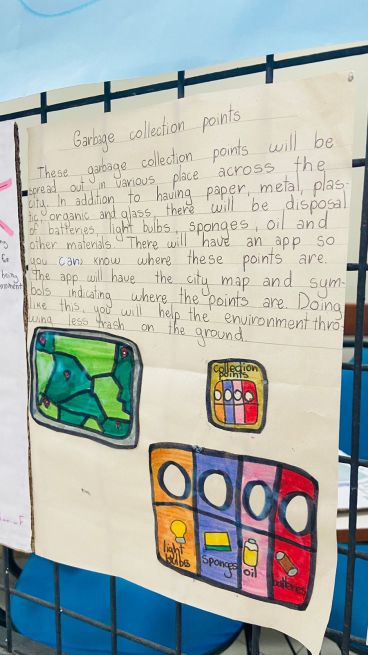 Garbage collection points
These garbage collection points will be
spread out in various place across the
city. In addition to having paper, metal, plas-
tic, organic and glass, there will be disposal
of batteries, light bulbs, sponges, oil and
other materials. There will have an app so
you can know where these points are.
The app will have the city map and sym-
bols indicating where the points are. Doing
like this, you will help the environment thro-
wing less trash on the ground
collection
points
light
bulbs
sponges
oil
being